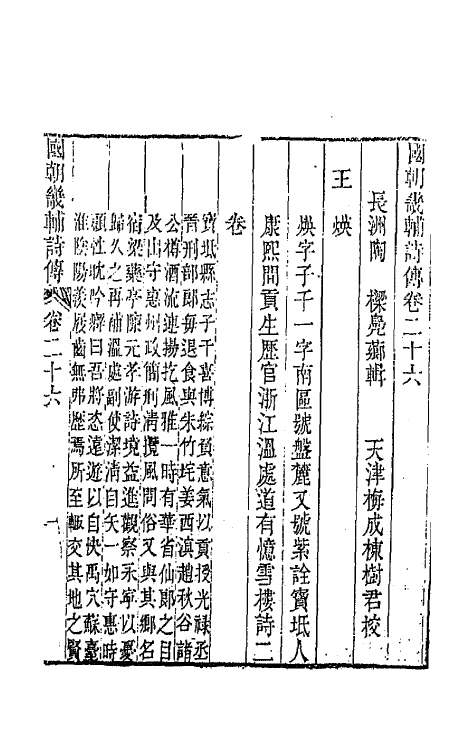 國朝畿輔詩傳卷二十六
長洲陶 樑鳧薌輯 天津梅成棟樹君校
王 煐
煐字子千一字南區號盤麓又號紫詮寶坻人
康熙間貢生歷官浙江溫處道有憶雪樓詩二
卷
寶坻縣志子千喜博綜負意氣以貢授光祿丞
晉刑部郎每退食與朱竹垞姜西溟趙秋谷諸
公樽酒流連揚扢風雅一時有華省仙郎之目
及出守惠州政簡刑清攬風問俗又與其鄉名
宿梁藥亭陳元孝游詩境益進觀察永寧以憂
歸久之再補溫處副使潔清自矢一如守惠時
顧性耽吟癖曰吾將恣遠遊以自快禹穴蘇臺
淮陰陽羨屐齒無弗歷焉所至輒交其地之賢
國朝畿輔詩傳 卷二十六 一